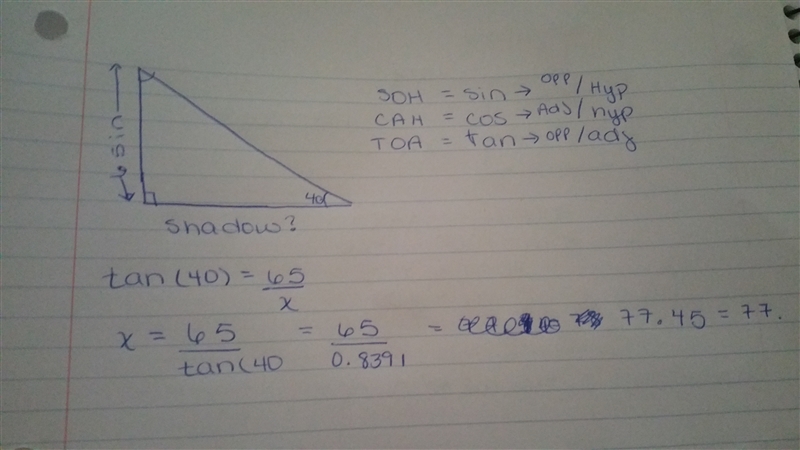 SOH = sin → opp/Hyp
CAH = cos → Adj/hyp
TOA = tan → opp/adj
65in
40
shadow?
tan(40) = 65/x
x = 65/tan(40 = 65/0.8391 = 77.45 = 77.